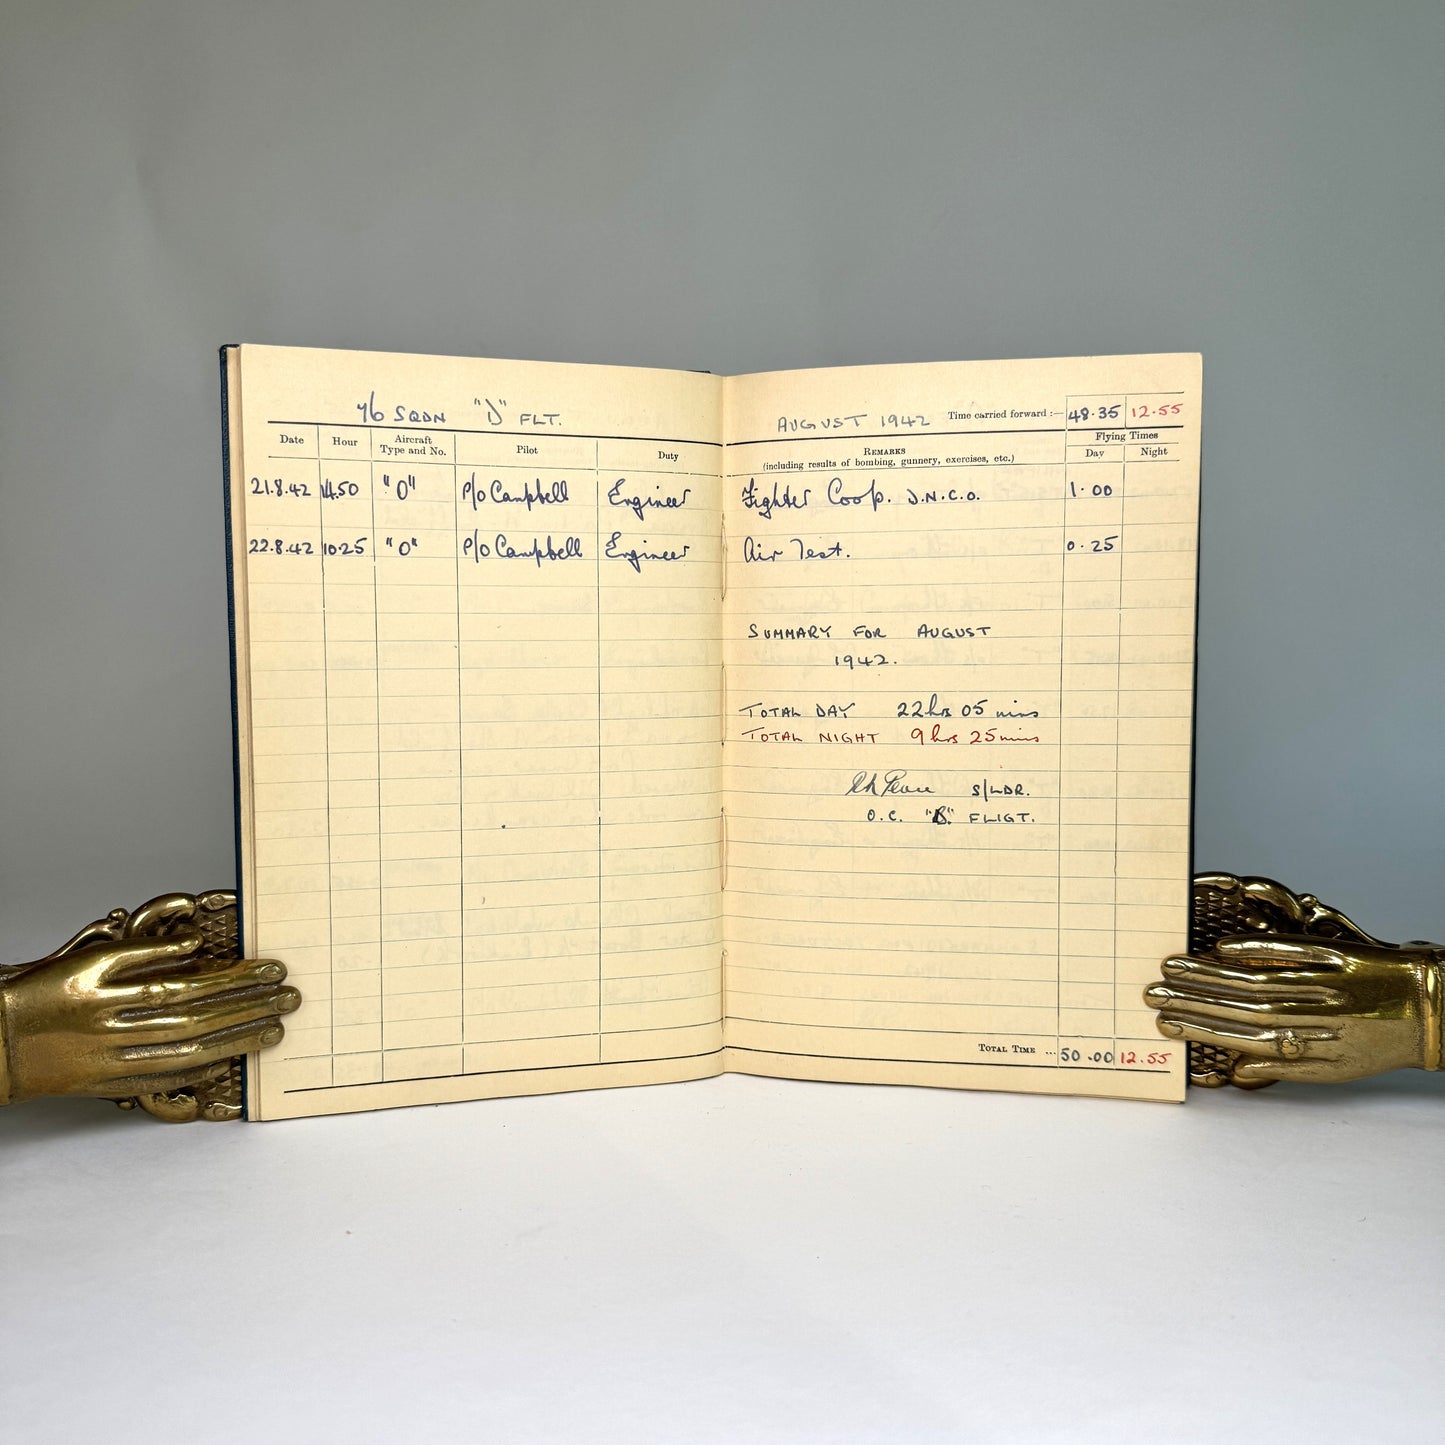 76 SQDN "D" FLT.
Date Hour Aircraft Type and No. Pilot Duty
21.8.42 14.50 "O" P/O Campbell Engineer
22.8.42 10.25 "O" P/O Campbell Engineer
AUGUST 1942 Time carried forward :— 48.35 12.55
REMARKS
(including results of bombing, gunnery, exercises, etc.)
Flying Times
Day Night
Fighter Coop. D.N.C.O. 1.00
Air Test. 0.25
SUMMARY FOR AUGUST
1942.
TOTAL DAY 22 hrs 05 mins
TOTAL NIGHT 9 hrs 25 mins
S/LDR.
O.C. "B" FLIGT.
TOTAL TIME ... 50.00 12.55